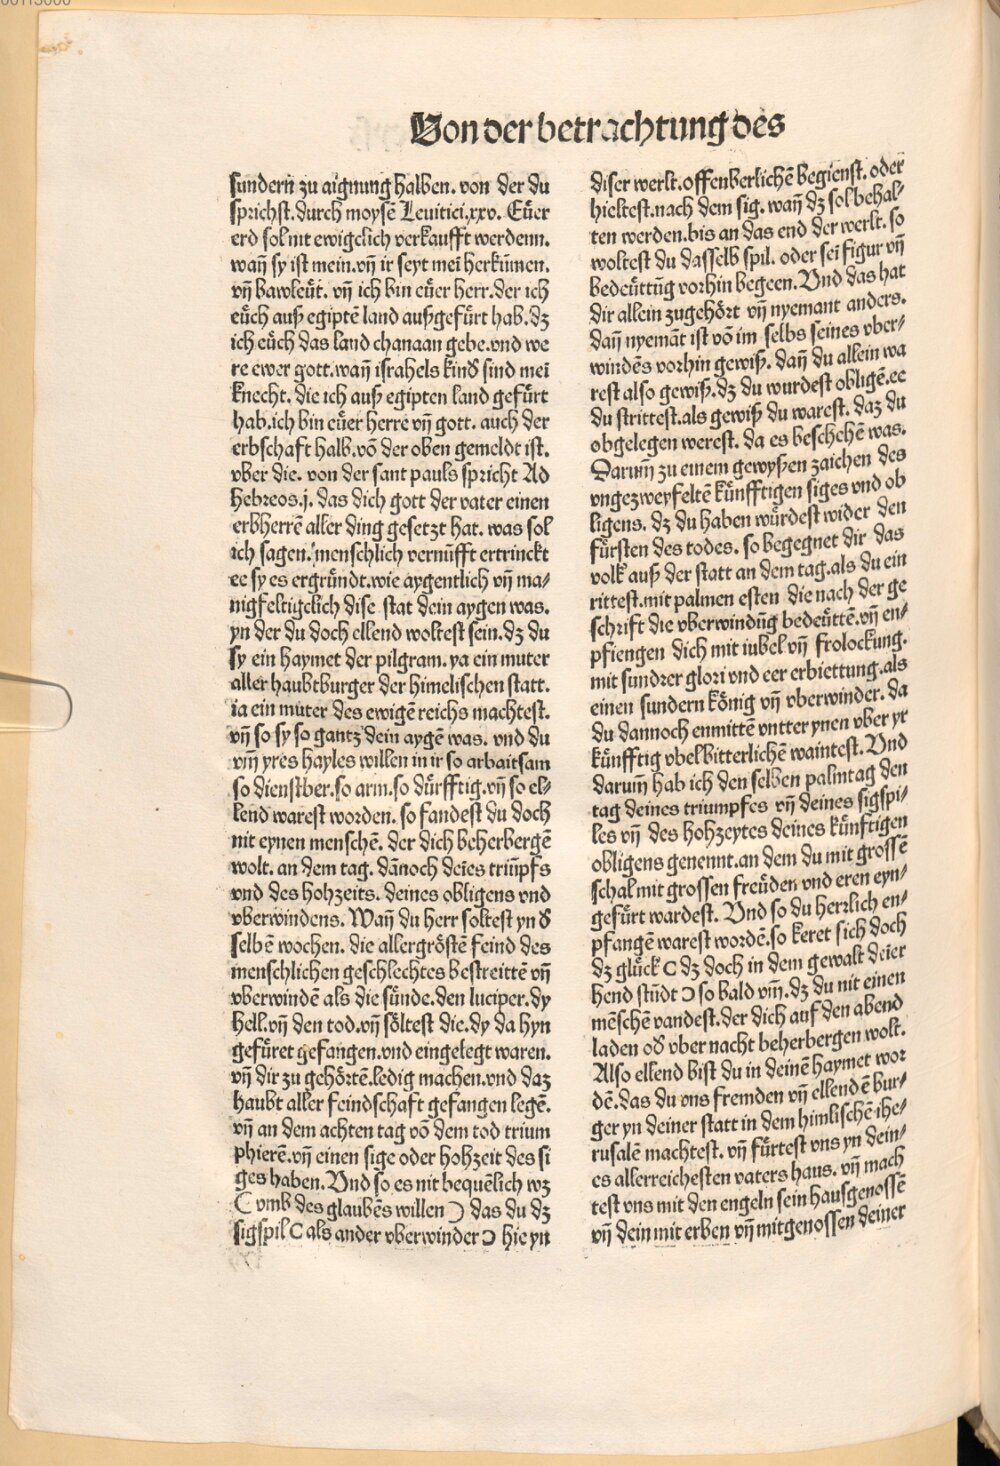 00115000
Von der betrachtung des
sundern zu aignung halben. von der du
sprichst. durch moysē Leuitici.xxv. Eüer
erd sol nit ewigclich verkaufft werdenn.
wañ sy ist mein. vñ ir seyt mei herkum̄en.
vñ bawleüt. vñ ich bin eüer herr. der ich
eüch auß egiptē land außgefürt hab. dz
ich eüch das land chanaan gebe. vnd we
re ewer gott. wañ israhels kind sind mei
knecht. die ich auß egipten land gefürt
hab. ich bin eüer herre vñ gott. auch der
erbschaft halb. vō der oben gemeldt ist.
vber die. von der sant pauls spricht Ad
Hebreos.j. das dich gott der vater einen
erbherrē aller ding gesetzt hat. was sol
ich sagen. menschlich vernufft ertrinckt
ee sy es ergründt. wie aygentlich vñ ma⸗
nigfeltigclich dise stat dein aygen was.
yn der du doch ellend woltest sein. dz du
sy ein haymet der pilgram. ya ein muter
aller haubtburger der himelischen statt.
ia ein muter des ewigē reichs machtest.
vñ so sy so gantz dein aygē was. vnd du
vm̄ yres hayles willen in ir so arbaitsam
so dienstber. so arm. so dürfftig. vñ so el⸗
lend warest worden. so fandest du doch
nit eynen menschē. der dich beherbergē
wolt. an dem tag. dānoch deīes triūpfs
vnd des hohzeits. deines obligens vnd
vberwindens. Wañ du herr soltest yn d̄
selbē wochen. die allergröstē feind des
menschlichen geschlechtes bestreittē vñ
vberwindē als die sünde. den luciper. dy
hell. vñ den tod. vñ söltest die. dy da hyn
gefüret gefangen. vnd eingelegt waren.
vñ dir zu gehörtē. ledig machen. vnd daz
haubt aller feindschaft gefangen legē.
vñ an dem achten tag vō dem tod trium
phierē. vñ einen sige oder hohzeit des si
ges haben. Vnd so es nit bequēlich wz
( vmb des glaubēs willen ) das du dz
sigspil ( als ander vberwinder ) hie yn
diser werlt. offenberlichē begienst. oder
hieltest. nach dem sig. wañ dz sol behal⸗
ten werden. bis an das end der werlt. so
woltest du dasselb spil. oder sei figur vñ
bedeüttūg vorhin begeen. Vnd das hat
dir allein zugehört vñ nyemant anders.
dañ nyemāt ist vō im selbs seines vber⸗
windēs vorhin gewiß. dañ du allein wa
rest also gewiß. dz du wurdest obligē. ee
du strittest. als gewiß du warest. daz du
obgelegen werest. da es beschehē was.
Darum̄ zu einem gewyßen zaichen des
vngezweyfeltē künfftigen siges vnd ob
ligens. dz du haben würdest wider den
fürsten des todes. so begegnet dir das
volk auß der statt an dem tag. als du ein
rittest. mit palmen esten die nach der ge
schrift die vberwindūg bedeüttē. vñ en⸗
pfiengen dich mit iubel vñ frolockung.
mit sundrer glori vnd eer erbiettung. als
einen sundern könig vñ vberwinder. da
du dannoch enmittē vntter ynen vber yr
künfftig vbel bitterlichē waintest. Vnd
darum̄ hab ich den selben palmtag den
tag deines triumpfes vñ deines sigspi⸗
les vñ des hohzeytes deines künftigen
obligens genennt. an dem du mit grossē
schal mit grossen freüden vnd eren eyn⸗
gefürt wardest. Vnd so du herzlich en⸗
pfangē warest wordē. so keret sich doch
dz glück ( dz doch in dem gewalt deīer
hend stūdt ) so bald vm̄. dz du nit einen
mēschē vandest. der dich auf den abend
laden od̄ vber nacht beherbergen wolt.
Also ellend bist du in deinē haymet wor
dē. das du vns fremden vñ ellendē bur⸗
ger yn deiner statt in dem himlischē ihe⸗
rusalē machtest. vñ fürtest vns yn dein⸗
es allerreichesten vaters haus. vñ mach
test vns mit den engeln sein hausgenossē
vñ dein mit erben vñ mitgenossen deiner